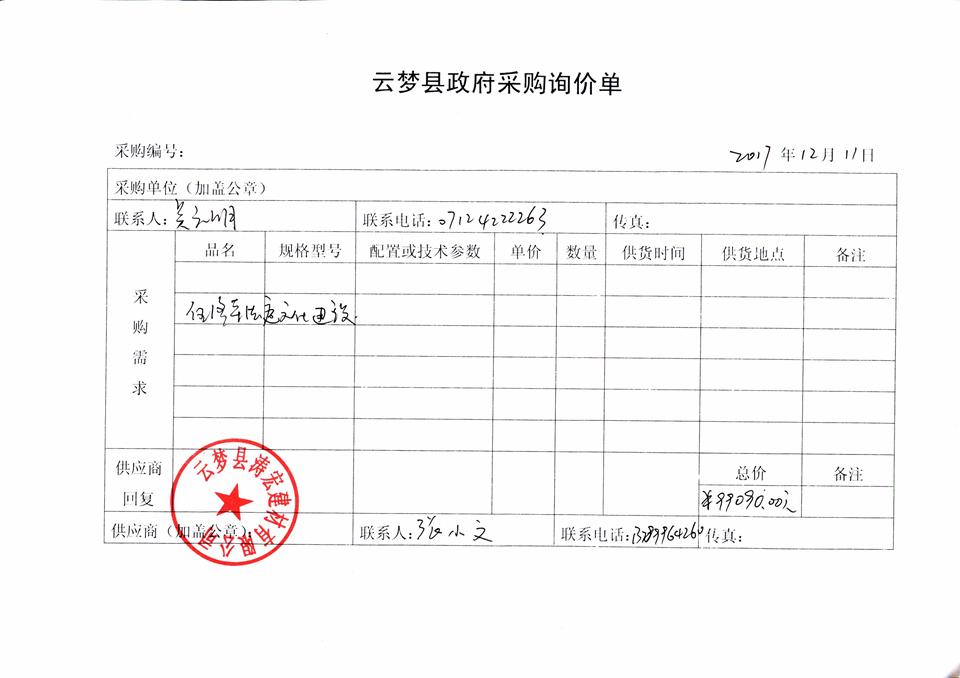 云梦县政府采购询价单
采购编号: 2017年12月11日
采购单位(加盖公章)
联系人: 联系电话:07124222263 传真:
品名 规格型号 配置或技术参数 单价 数量 供货时间 供货地点 备注
采购需求
法庭文化建设
供应商回复 总价 备注
¥99090.00元
供应商(加盖公章): 联系人:张小文 联系电话: 传真:
云梦县涛宏建材有限公司